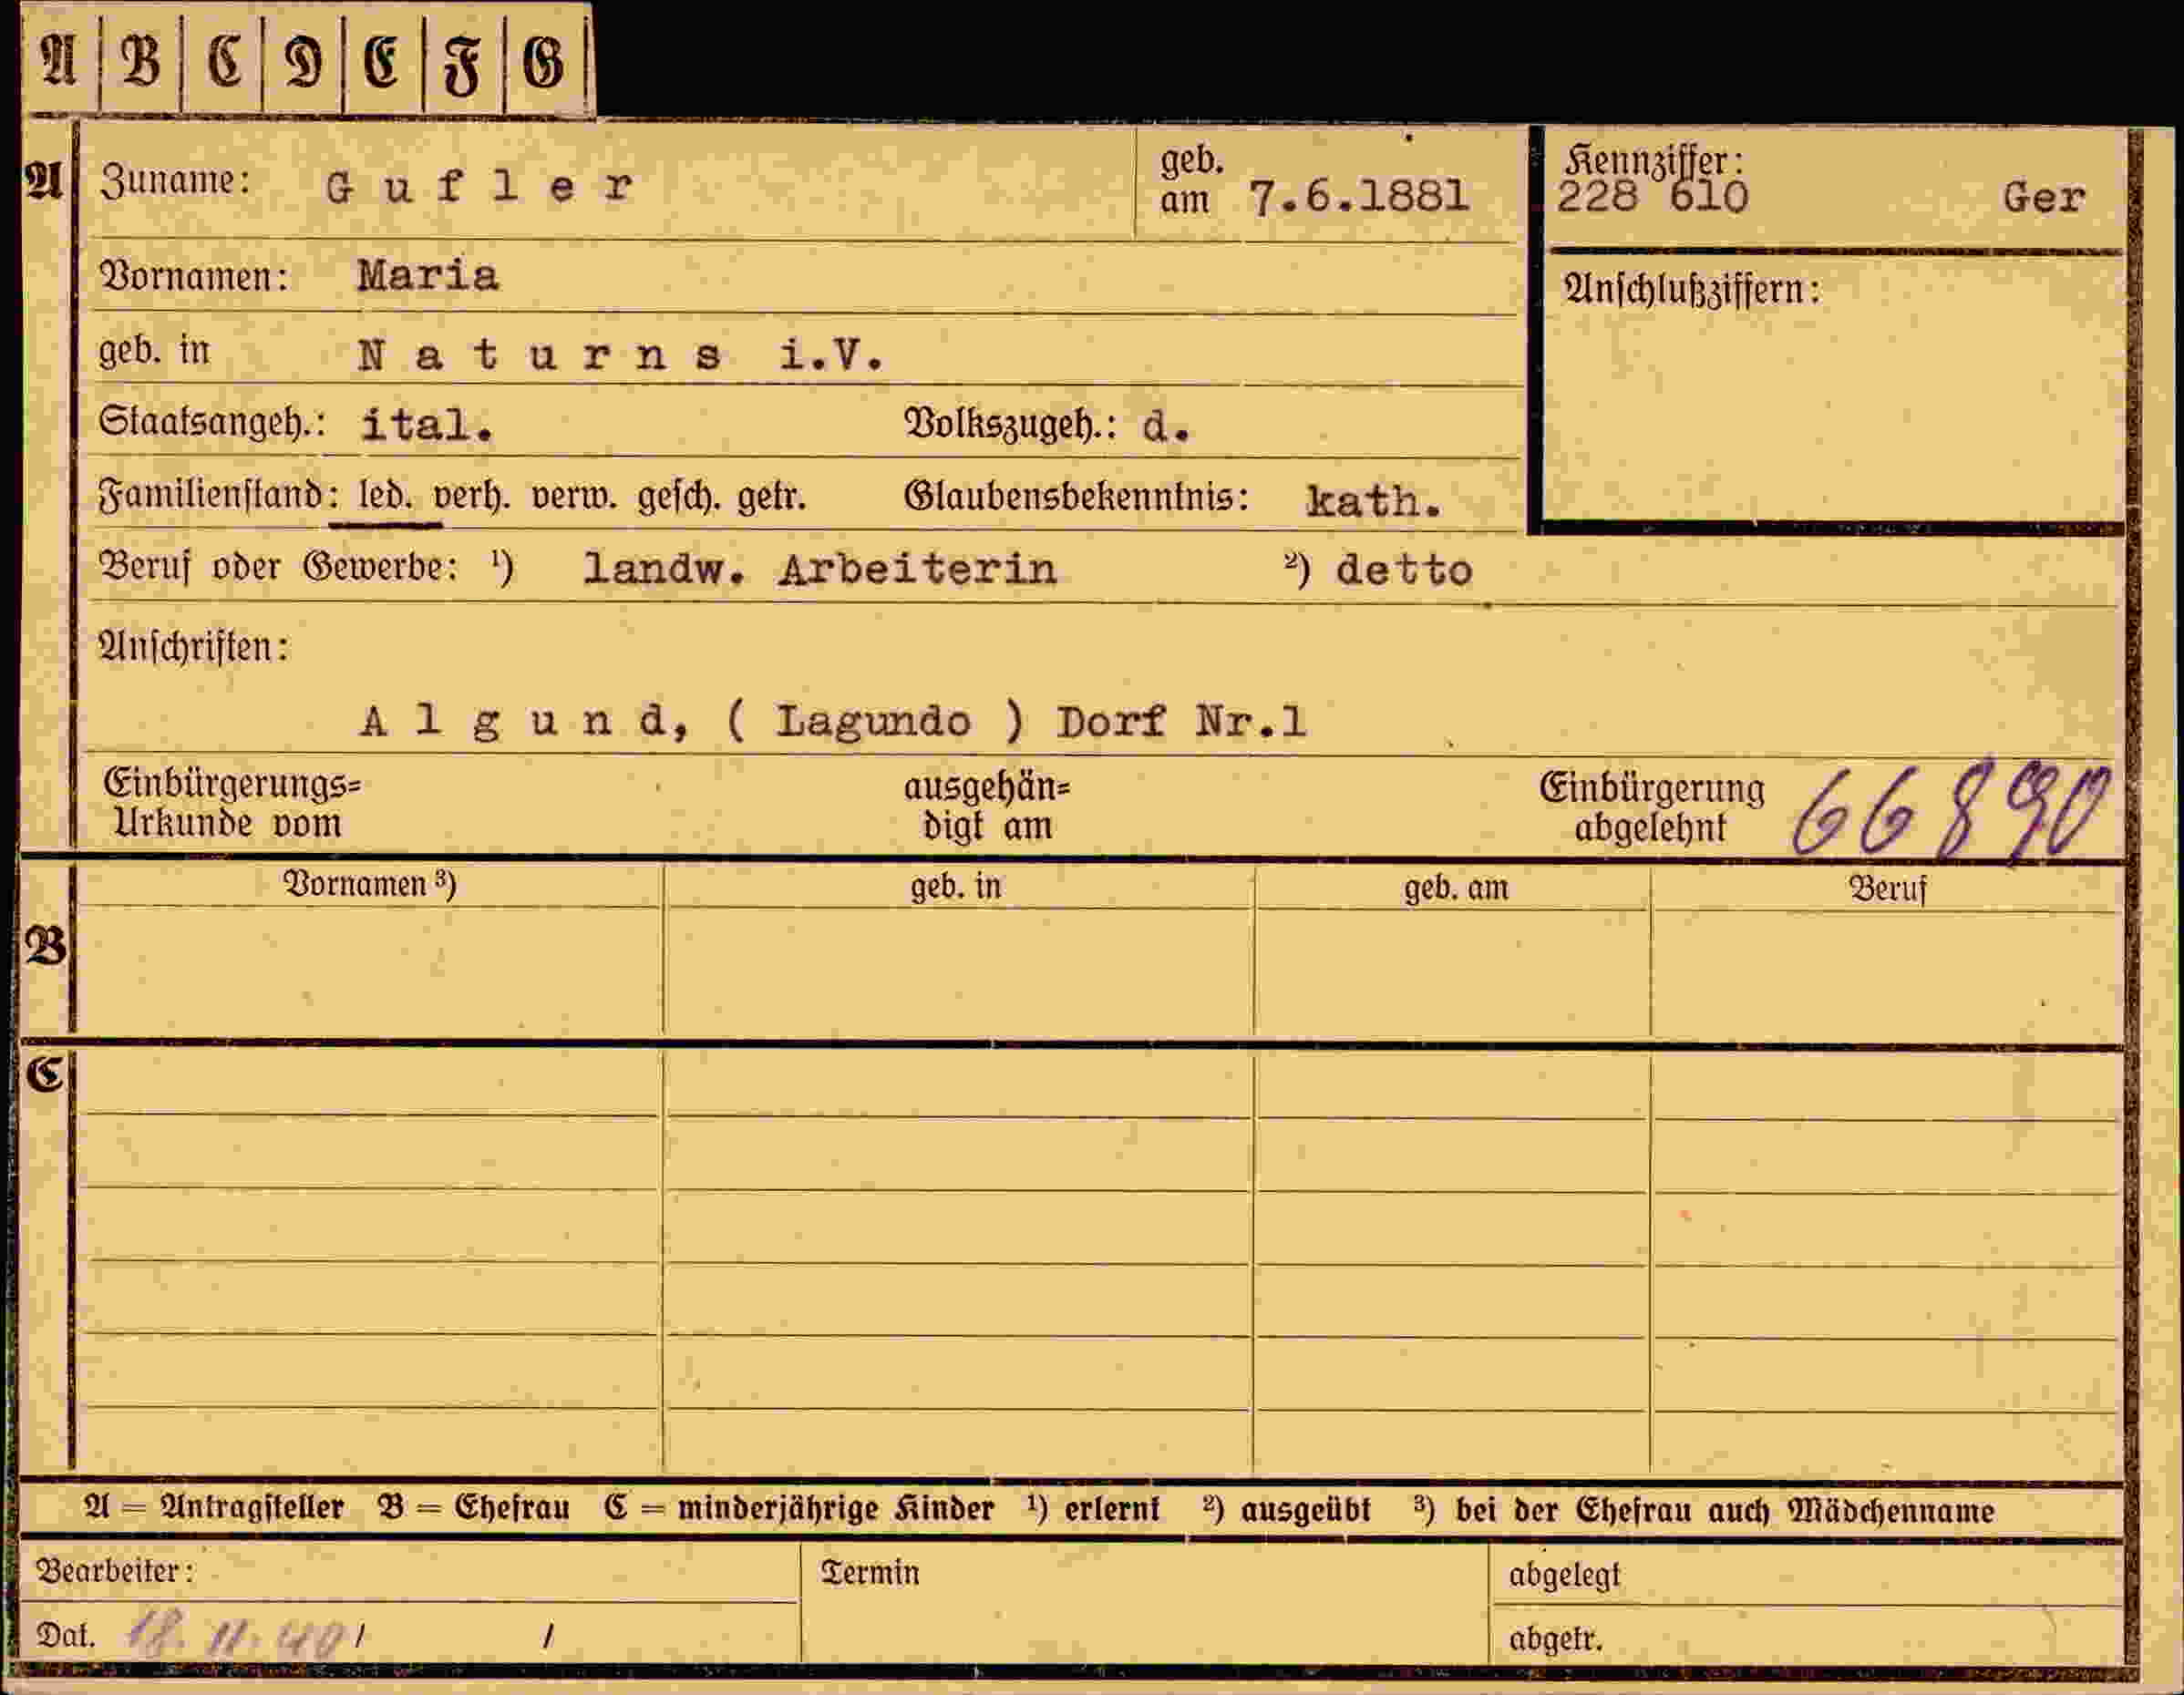 A B C D E F G
A Zuname: Gufler geb. am 7.6.1881 Kennziffer: 228 610 Ger
Vornamen: Maria Anschlußziffern:
geb. in Naturns i.V.
Staatsangeh.: ital. Volkszugeh.: d.
Familienstand: led. verh. verw. gesch. getr. Glaubensbekenntnis: kath.
Beruf oder Gewerbe: ¹) landw. Arbeiterin ²) detto
Anschriften:
Algund, ( Lagundo ) Dorf Nr.1
Einbürgerungs= ausgehän= Einbürgerung 66890
Urkunde vom digt am abgelehnt
Vornamen ³) geb. in geb. am Beruf
B
C
A = Antragsteller B = Ehefrau C = minderjährige Kinder ¹) erlernt ²) ausgeübt ³) bei der Ehefrau auch Mädchenname
Bearbeiter: Termin abgelegt
Dat. 18. 11. 40 / / abgetr.